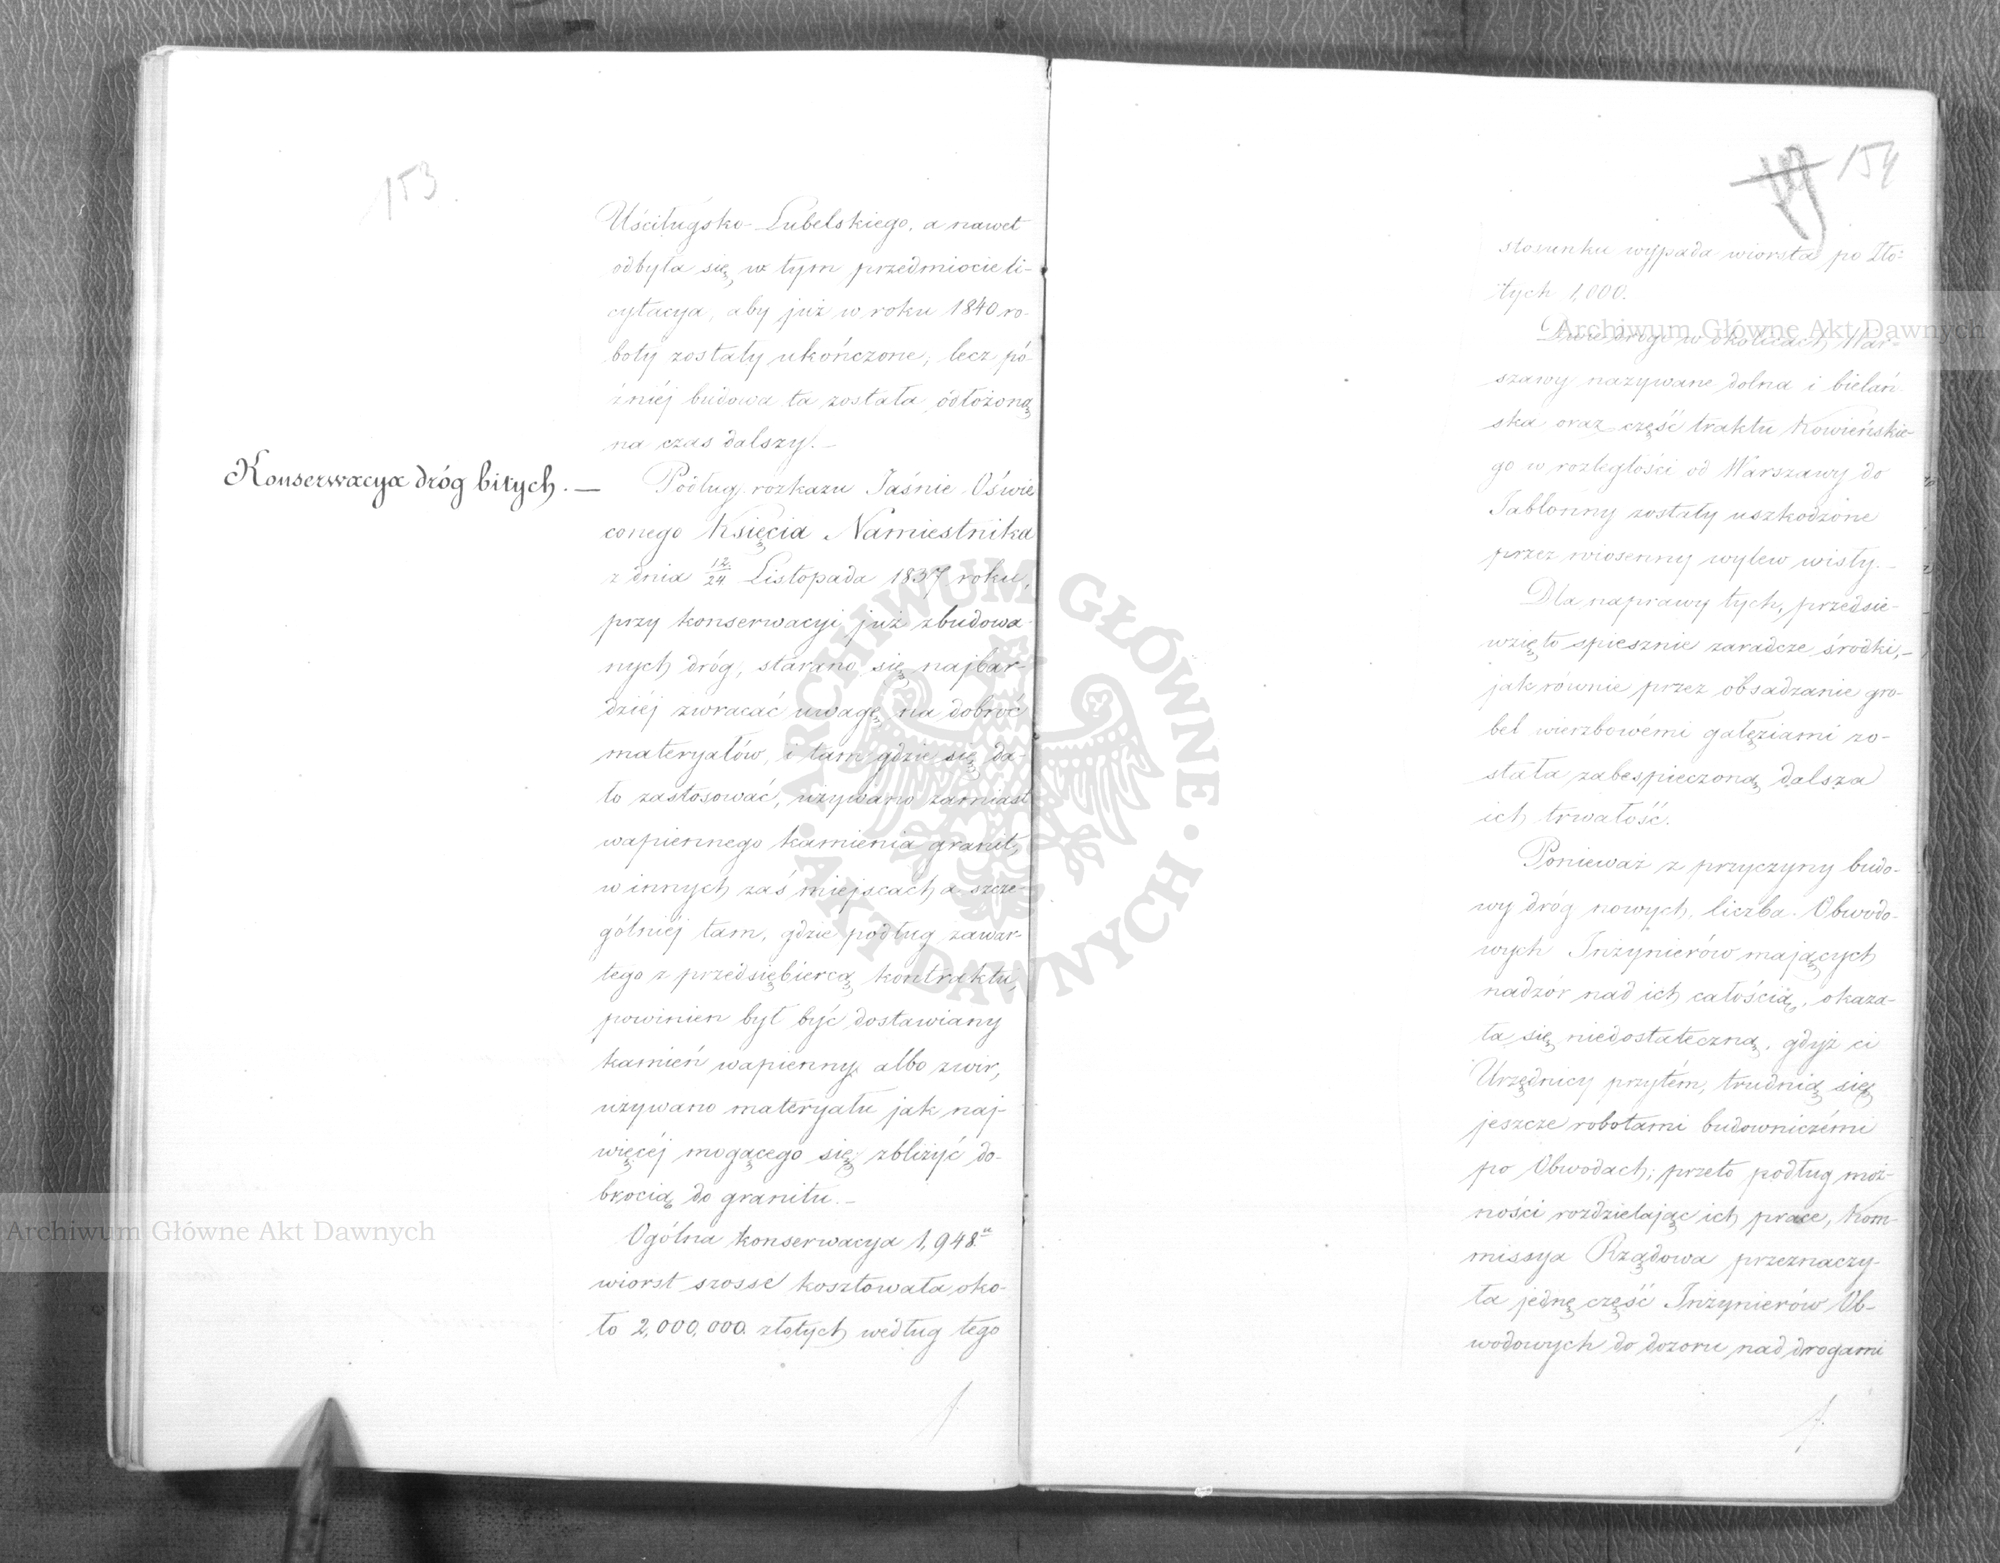 153.
Uściługsko-Lubelskiego, a nawet
odbyła się w tym przedmiocie li-
cytacya, aby już w roku 1840 ro-
boty zostały ukończone; lecz pó-
źniéj budowa ta została odłożoną
na czas dalszy. —
Konserwacya dróg bitych. —
Podług rozkazu Jaśnie Oświe
conego Księcia Namiestnika
z dnia 12/24 Listopada 1837 roku,
przy konserwacyi już zbudowa-
nych dróg, starano się najbar-
dziéj zwracać uwagę na dobroć
materyałów, i tam gdzie się da-
ło zastosować, używano zamiast
wapiennego kamienia granit,
w innych zaś miejscach a szcze-
gólniéj tam, gdzie podług zawar-
tego z przedsiębiercą kontraktu,
powinien był być dostawiany
kamień wapienny albo zwir,
używano materyału jak naj-
więcéj mogącego się zbliżyć do-
brocią do granitu. —
Ogólna konserwacya 1,948
wiorst szosse kosztowała oko-
ło 2,000,000 złotych według tego
154
stosunku wypada wiorsta po Zło-
tych 1,000.
Dwie drogi w okolicach War-
szawy nazywane dolna i bielań-
ska oraz część traktu Kowieńskie-
go w rozległości od Warszawy do
Jabłonny zostały uszkodzone
przez wiosenny wylew wisły. —
Dla naprawy tych, przedsie-
wzięto spiesznie zaradcze środki, —
jak równie przez obsadzanie gro-
bel wierzbowémi gałęziami zo-
stała zabespieczoną dalsza
ich trwałość.
Ponieważ z przyczyny budo-
wy dróg nowych, liczba Obwodo-
wych Inżynierów mających
nadzór nad ich całością, okaza-
ła się niedostateczną, gdyż ci
Urzędnicy przytém, trudnią się
jeszcze robotami budowniczémi
po Obwodach; przeto podług moż-
ności rozdzielając ich prace, Kom-
missya Rządowa przeznaczy-
ła jednę część Inżynierów Ob-
wodowych do dozoru nad drogami
Archiwum Główne Akt Dawnych
Archiwum Główne Akt Dawnych
ARCHIWUM GŁÓWNE · AKT DAWNYCH ·